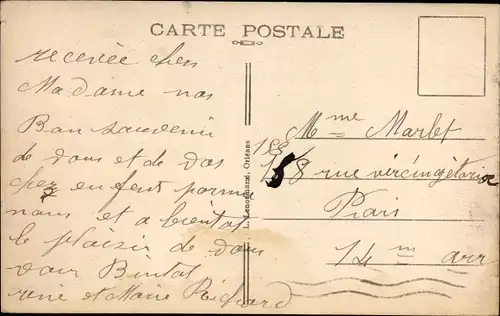 CARTE POSTALE
recevée cher
Madame nos
Bon souvenir
de vous et de vos
chez enfent
nous et a bientot
le plaisir de
Bintot
rene et Marie Richard
L. Lenormand, Orléans
Mme Marlet
188
158 rue vércingétorixe
Prais
14 m arr